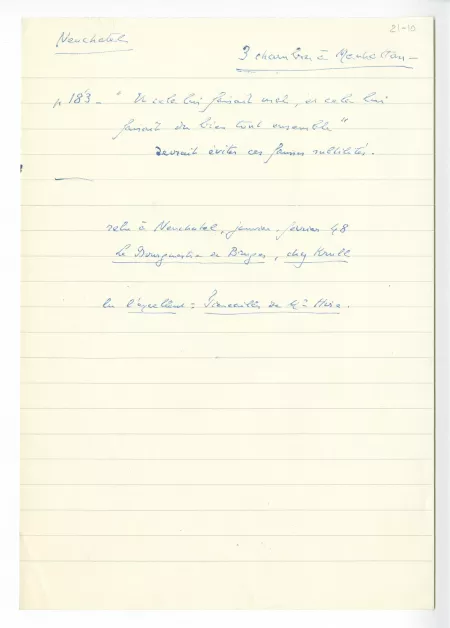 21-10
Neuchatel
3 chambres à Manhattan
p 183 - " Et cela lui faisait mal, et cela lui
faisait du bien tout ensemble "
devrait éviter ces fausses subtilités.
relu à Neuchatel, janvier-février 48
Le Bourgmestre de Furnes, chez Krull
lu : Fiançailles de Mr Hire.